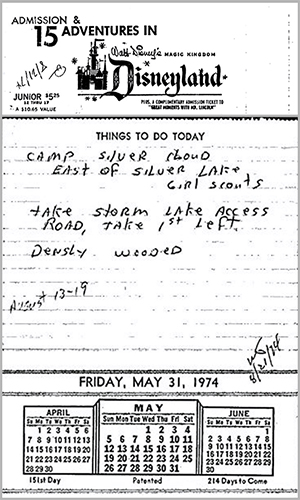 ADMISSION &
15 ADVENTURES IN
Walt Disney's MAGIC KINGDOM
Disneyland
JUNIOR $5.25
12 THRU 17
A $10.65 VALUE
PLUS, A COMPLIMENTARY ADMISSION TICKET TO
"GREAT MOMENTS WITH MR. LINCOLN"
THINGS TO DO TODAY
CAMP SILVER Cloud
EAST OF SILVER LAKE
Girl Scouts
TAKE STORM LAKE ACCESS
ROAD, TAKE 1ST LEFT
Densly WOODED
August 13-19
8/21/74
FRIDAY, MAY 31, 1974
APRIL
Su Mo Tu We Th Fr Sa
1 2 3 4 5 6
7 8 9 10 11 12 13
14 15 16 17 18 19 20
21 22 23 24 25 26 27
28 29 30
151st Day
MAY
Sun Mon Tue Wed Thu Fri Sat
1 2 3 4
5 6 7 8 9 10 11
12 13 14 15 16 17 18
19 20 21 22 23 24 25
26 27 28 29 30 31
Patented
JUNE
Su Mo Tu We Th Fr Sa
1
2 3 4 5 6 7 8
9 10 11 12 13 14 15
16 17 18 19 20 21 22
23 24 25 26 27 28 29
30
214 Days to Come